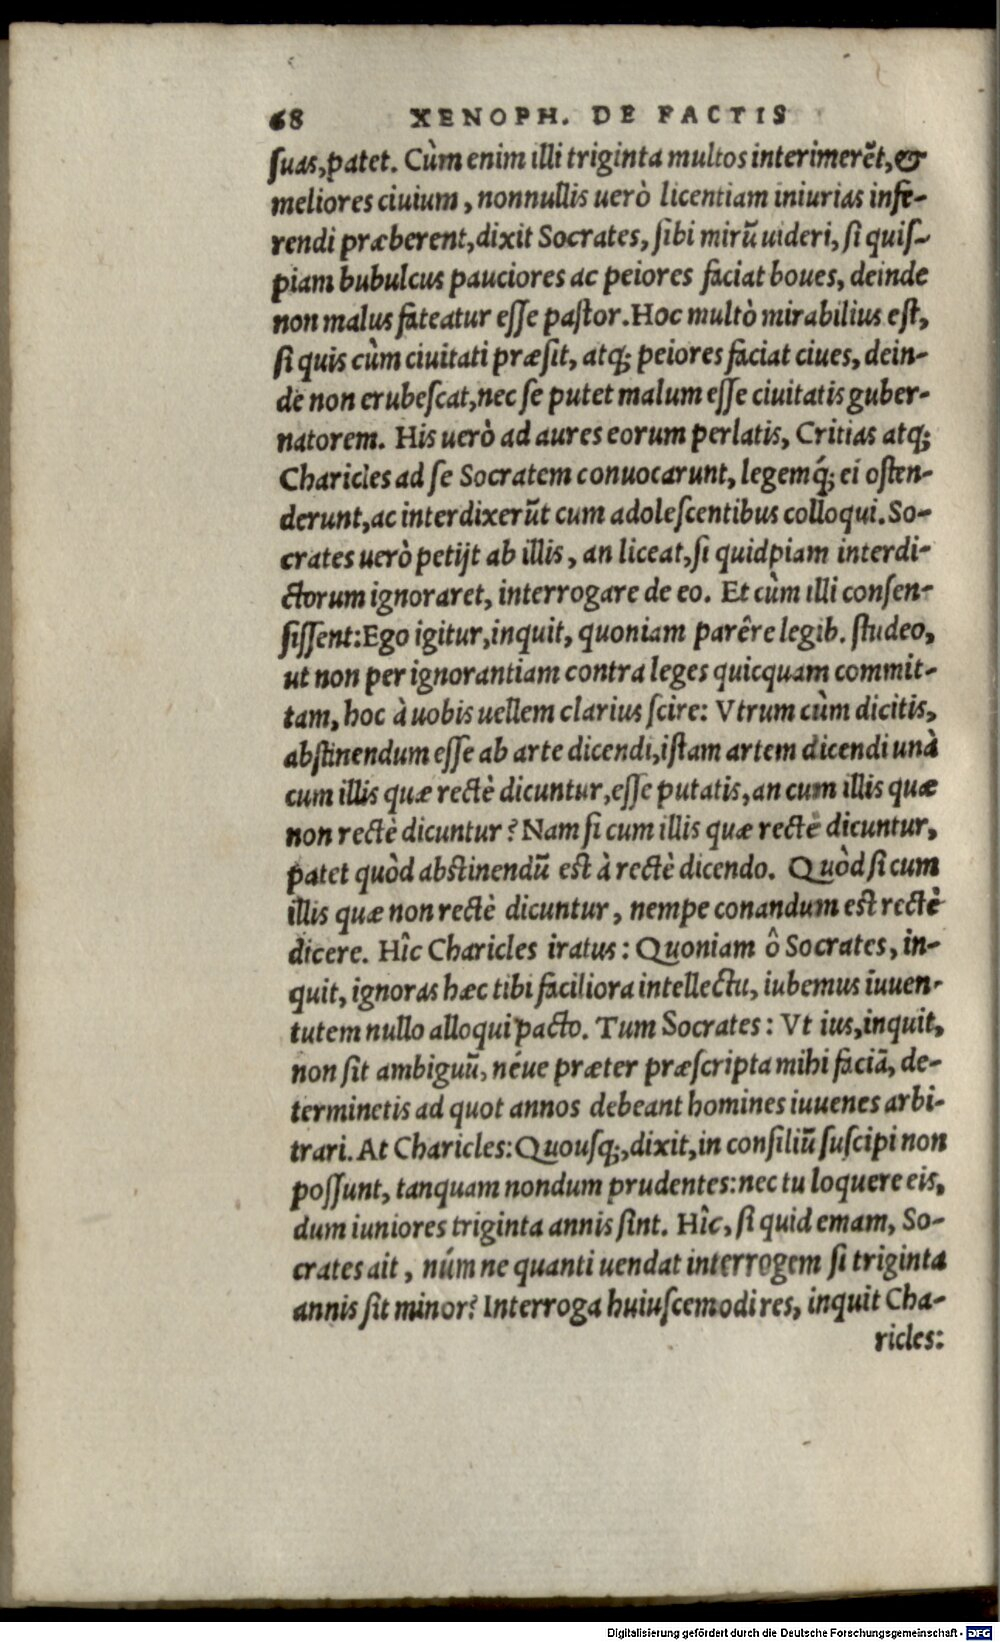 68 XENOPH. DE FACTIS
suas, patet. Cùm enim illi triginta multos interimerẽt, &
meliores ciuium, nonnullis uerò licentiam iniurias infe-
rendi præberent, dixit Socrates, sibi mirũ uideri, si quis-
piam bubulcus pauciores ac peiores faciat boues, deinde
non malus fateatur esse pastor. Hoc multò mirabilius est,
si quis cùm ciuitati præsit, atq; peiores faciat ciues, dein-
de non erubescat, nec se putet malum esse ciuitatis guber-
natorem. His uerò ad aures eorum perlatis, Critias atq;
Charicles ad se Socratem conuocarunt, legemq́; ei osten-
derunt, ac interdixerũt cum adolescentibus colloqui. So-
crates uerò petijt ab illis, an liceat, si quidpiam interdi-
ctorum ignoraret, interrogare de eo. Et cùm illi consen-
sissent: Ego igitur, inquit, quoniam parêre legib. studeo,
ut non per ignorantiam contra leges quicquam commit-
tam, hoc à uobis uellem clarius scire: Vtrum cùm dicitis,
abstinendum esse ab arte dicendi, istam artem dicendi unà
cum illis quæ rectè dicuntur, esse putatis, an cum illis quæ
non rectè dicuntur? Nam si cum illis quæ rectè dicuntur,
patet quòd abstinendũ est à rectè dicendo. Quòd si cum
illis quæ non rectè dicuntur, nempe conandum est rectè
dicere. Hîc Charicles iratus: Quoniam ô Socrates, in-
quit, ignoras hæc tibi faciliora intellectu, iubemus iuuen-
tutem nullo alloqui pacto. Tum Socrates: Vt ius, inquit,
non sit ambiguũ, néue præter præscripta mihi faciã, de-
terminetis ad quot annos debeant homines iuuenes arbi-
trari. At Charicles: Quousq;, dixit, in consiliũ suscipi non
possunt, tanquam nondum prudentes: nec tu loquere eis,
dum iuniores triginta annis sint. Hîc, si quid emam, So-
crates ait, núm ne quanti uendat interrogem si triginta
annis sit minor? Interroga huiuscemodi res, inquit Cha-
ricles:
Digitalisierung gefördert durch die Deutsche Forschungsgemeinschaft - DFG